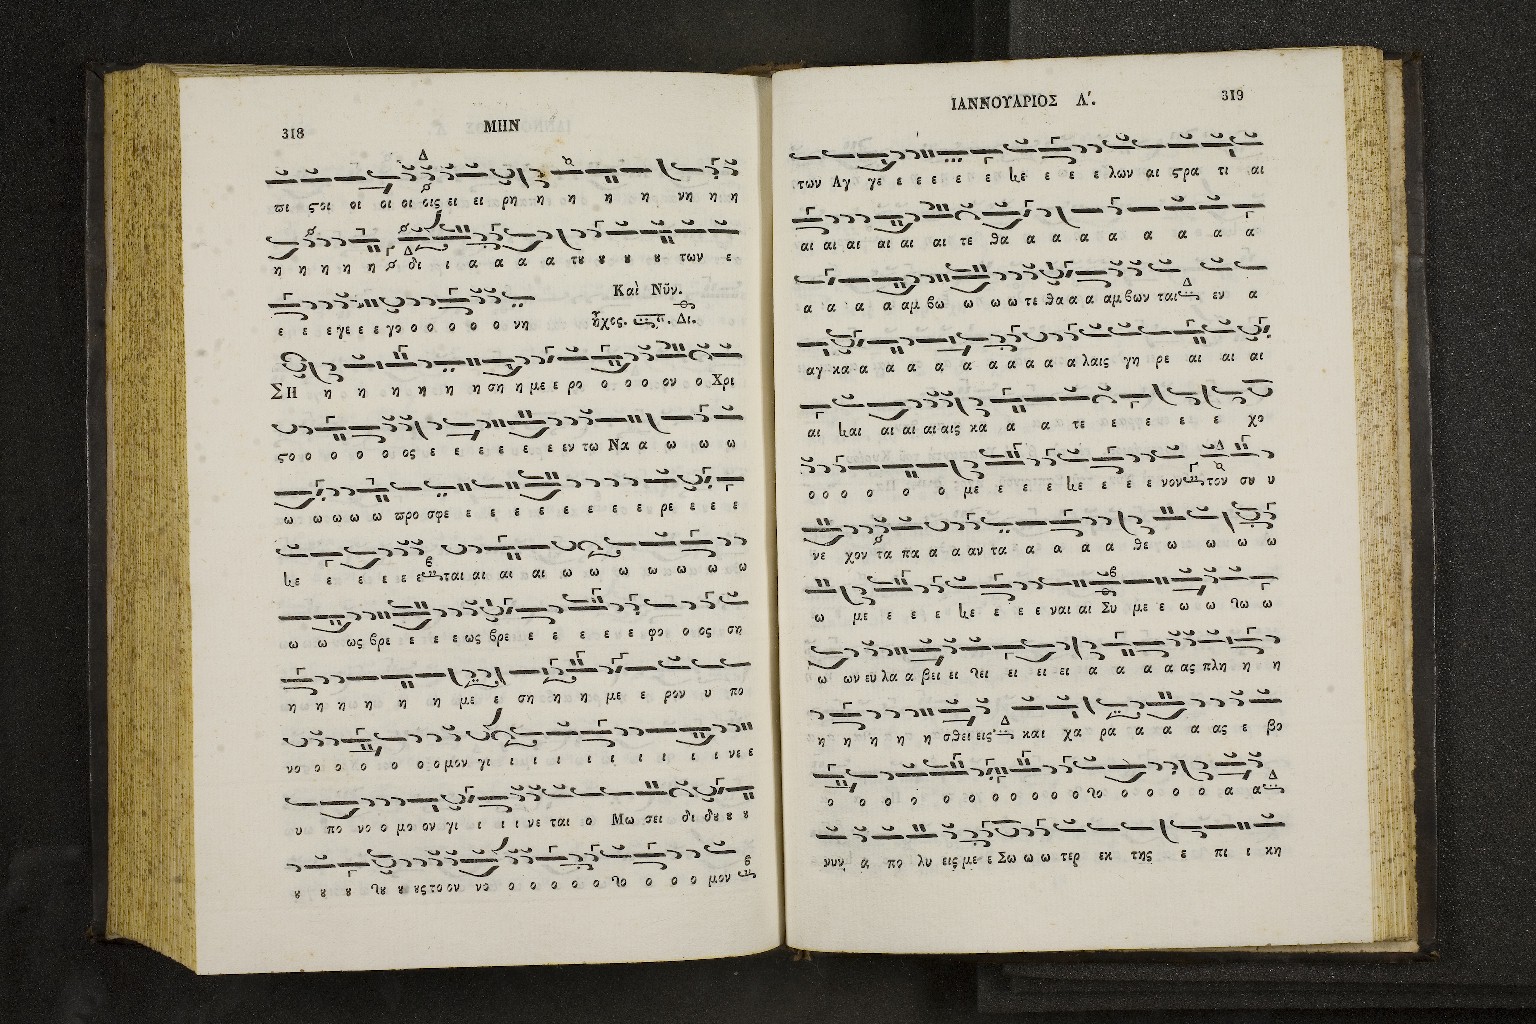 318
ΜΗΝ
πι ςοι οι οι οι οις ει ει ρη η η η η νη η η
η η η η η δι ι α α α α τȣ ȣ ȣ ȣ των ε
ε ε ε γε ε ε γο ο ο ο ο ο νη
Καὶ Νῦν.
ἦχος. Δι.
ΣΗ η η η η η η ση η με ε ρο ο ο ο ον ο Χρι
ςο ο ο ο ο ος ε ε ε ε ε ε εν τω Να α ω ω ω
ω ω ω ω ω προ σφε ε ε ε ε ε ε ε ε ρε ε ε ε
ε ε ε ε ε ται αι αι αι ω ω ω ω ω ω ω
ω ω ως βρε ε ε ε ως βρε ε ε ε ε ε φο ο ος ση
η η η η η η με ε ση η η με ε ρον υ πο
νο ο ο ο ο ο ο μον γι ι ι ι ι ι ι ι ι νε ε
υ πο νο ο μο ον γι ι ι ι νε ται ο Μω σει δι δȣ ȣ ȣ
ȣ ȣ ȣ ȣ ȣς το ον νο ο ο ο ο ο ο ο ο μον
ΙΑΝΝΟΥΑΡΙΟΣ Λ΄.
319
των Αγ γε ε ε ε ε ε ε ε ε ε λων αι ςρα τι αι
αι αι αι αι αι αι τε θα α α α α α α α α α
α α α α αμ βω ω ω ω τε θα α α αμ βων ται εν α
αγ κα α α α α α α α α α α λαις γη ρε αι αι αι
αι αι αι αι αι αις κα α α τε ε ε ε ε χο
ο ο ο ο ο ο με ε ε ε ε ε ε νον τον συ υ
νε χον τα πα α α αν τα α α α α θε ω ω ω ω
ω με ε ε ε ε ε ε ε ναι αι Συ με ε ω ω ω ω
ω ων ευ λα α βει ει ει ει ει ει α α α α ας πλη η η
η η η η η σθει εις και χα ρα α α α ας ε βο
ο ο ο ο ο ο ο ο ο ο ο ο ο ο ο α α
νυν α πο λυ εις με ε Σω ω ω τερ εκ της ε πι ι κη